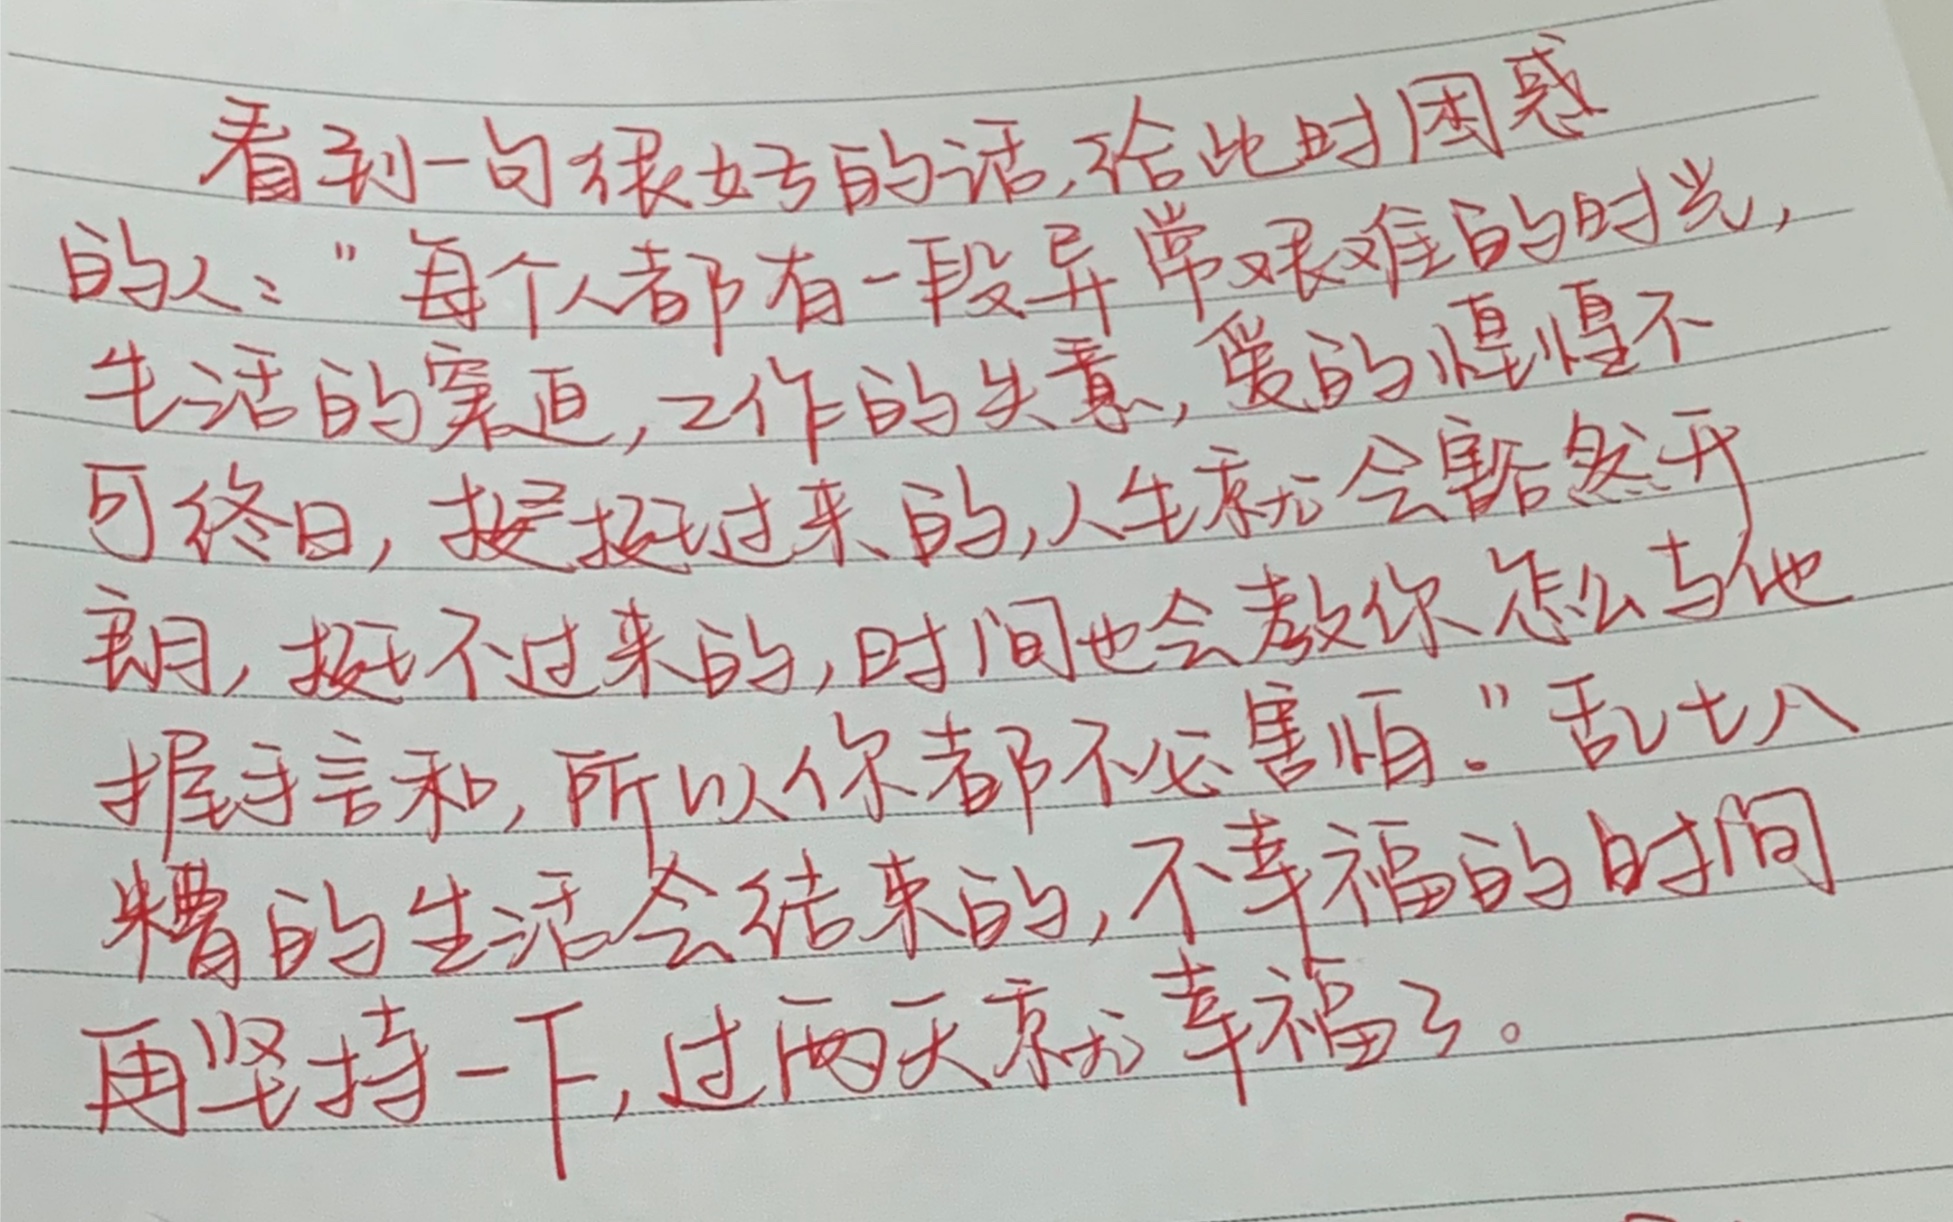 看到一句很好的话,给此时困惑
的人:"每个人都有一段异常艰难的时光,
生活的窘迫,工作的失意,爱的惶惶不
可终日,挺挺过来的,人生就会豁然开
朗,挺不过来的,时间也会教你怎么与他
握手言和,所以你都不必害怕。"乱七八
糟的生活会结束的,不幸福的时间
再坚持一下,过两天就幸福了。